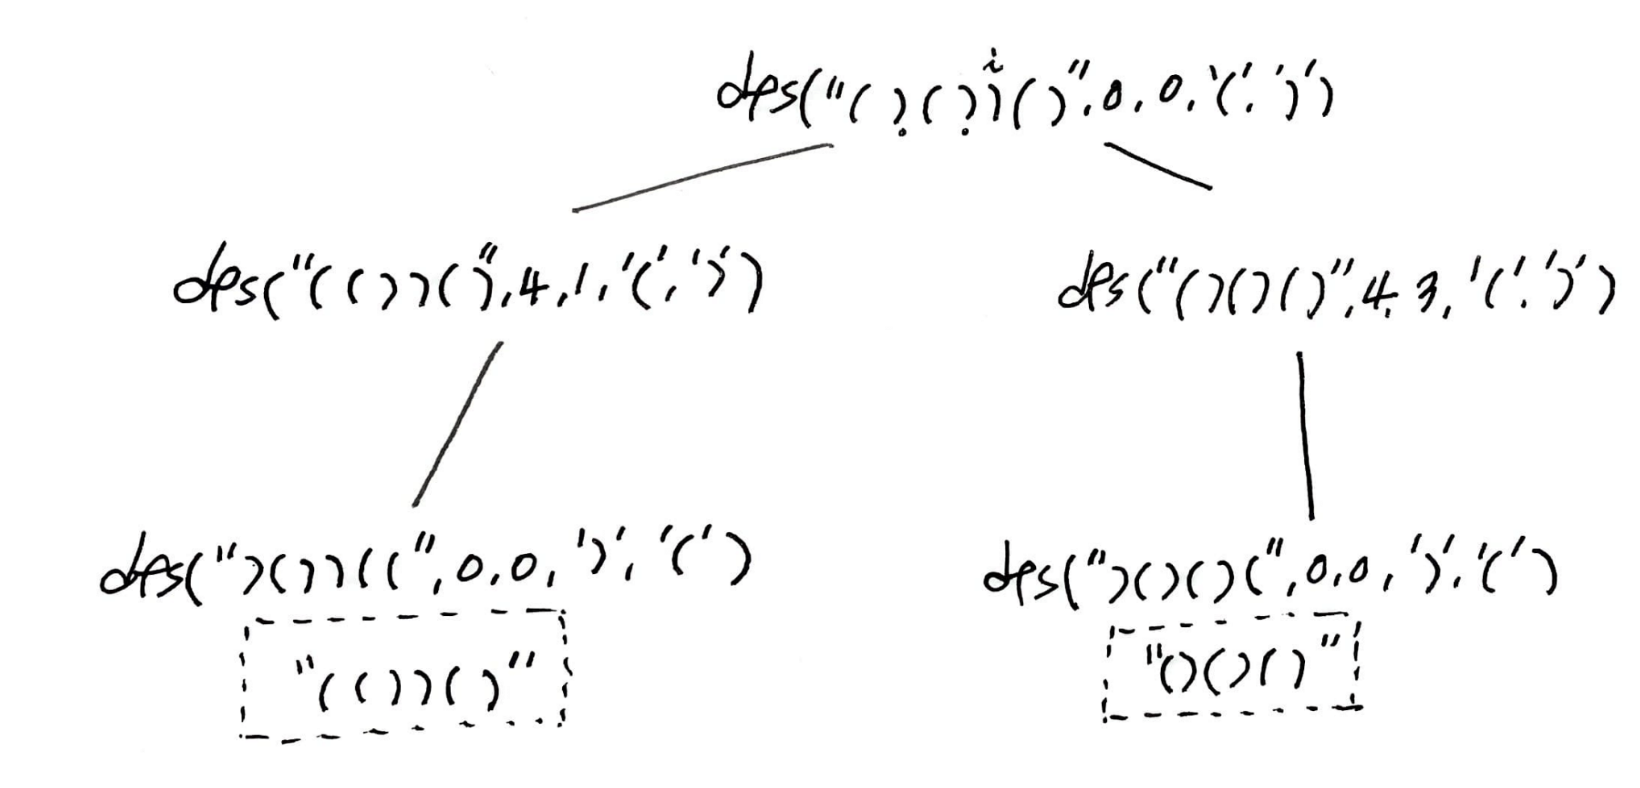 i
dfs("()())()",0,0,'(',')')
dfs("(())()",4,1,'(',')')
dfs("()()()",4,3,'(',')')
dfs(")())((",0,0,')','(')
dfs(")()()(",0,0,')','(')
"(())()"
"()()()"